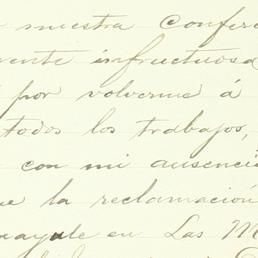 nuestra Confere
mente infructuosa
por volverme á
todos los trabajos,
con mi ausenci
ue la reclamación
en Las M